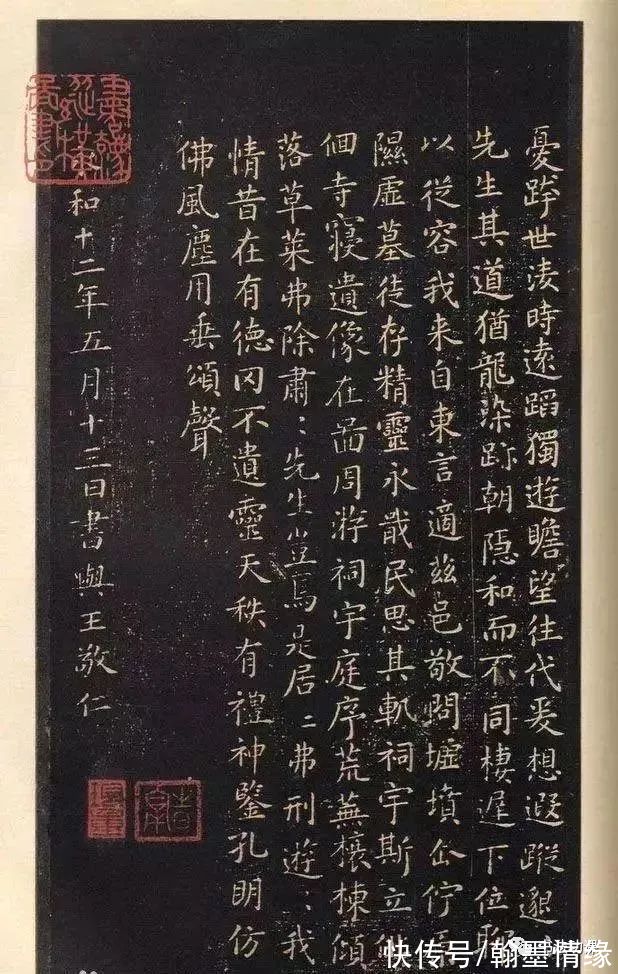 憂跨世淩時遠蹈獨遊瞻望往代爰想遐蹤邈
先生其道猶龍染跡朝隐和而不同棲遲下位聊
以従容我来自東言適兹邑敬問墟墳企佇原
隰虚墓徒存精靈永戢民思其軌祠宇斯立徘
徊寺寝遺像在啚周游祠宇庭序荒蕪榱棟傾
落草莱弗除肅〻先生豈焉是居〻弗刑遊〻我
情昔在有德罔不遺靈天秩有禮神鑒孔明仿
佛風塵用垂頌聲
和十二年五月十三日書與王敬仁
快传号/翰墨情缘